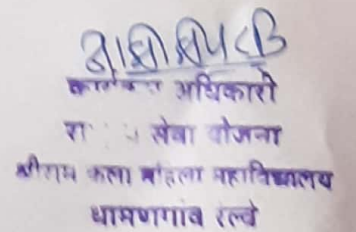 अधिकारी
सेवा योजना
श्रीराम कला महिला महाविद्यालय
धामणगांव रेल्वे